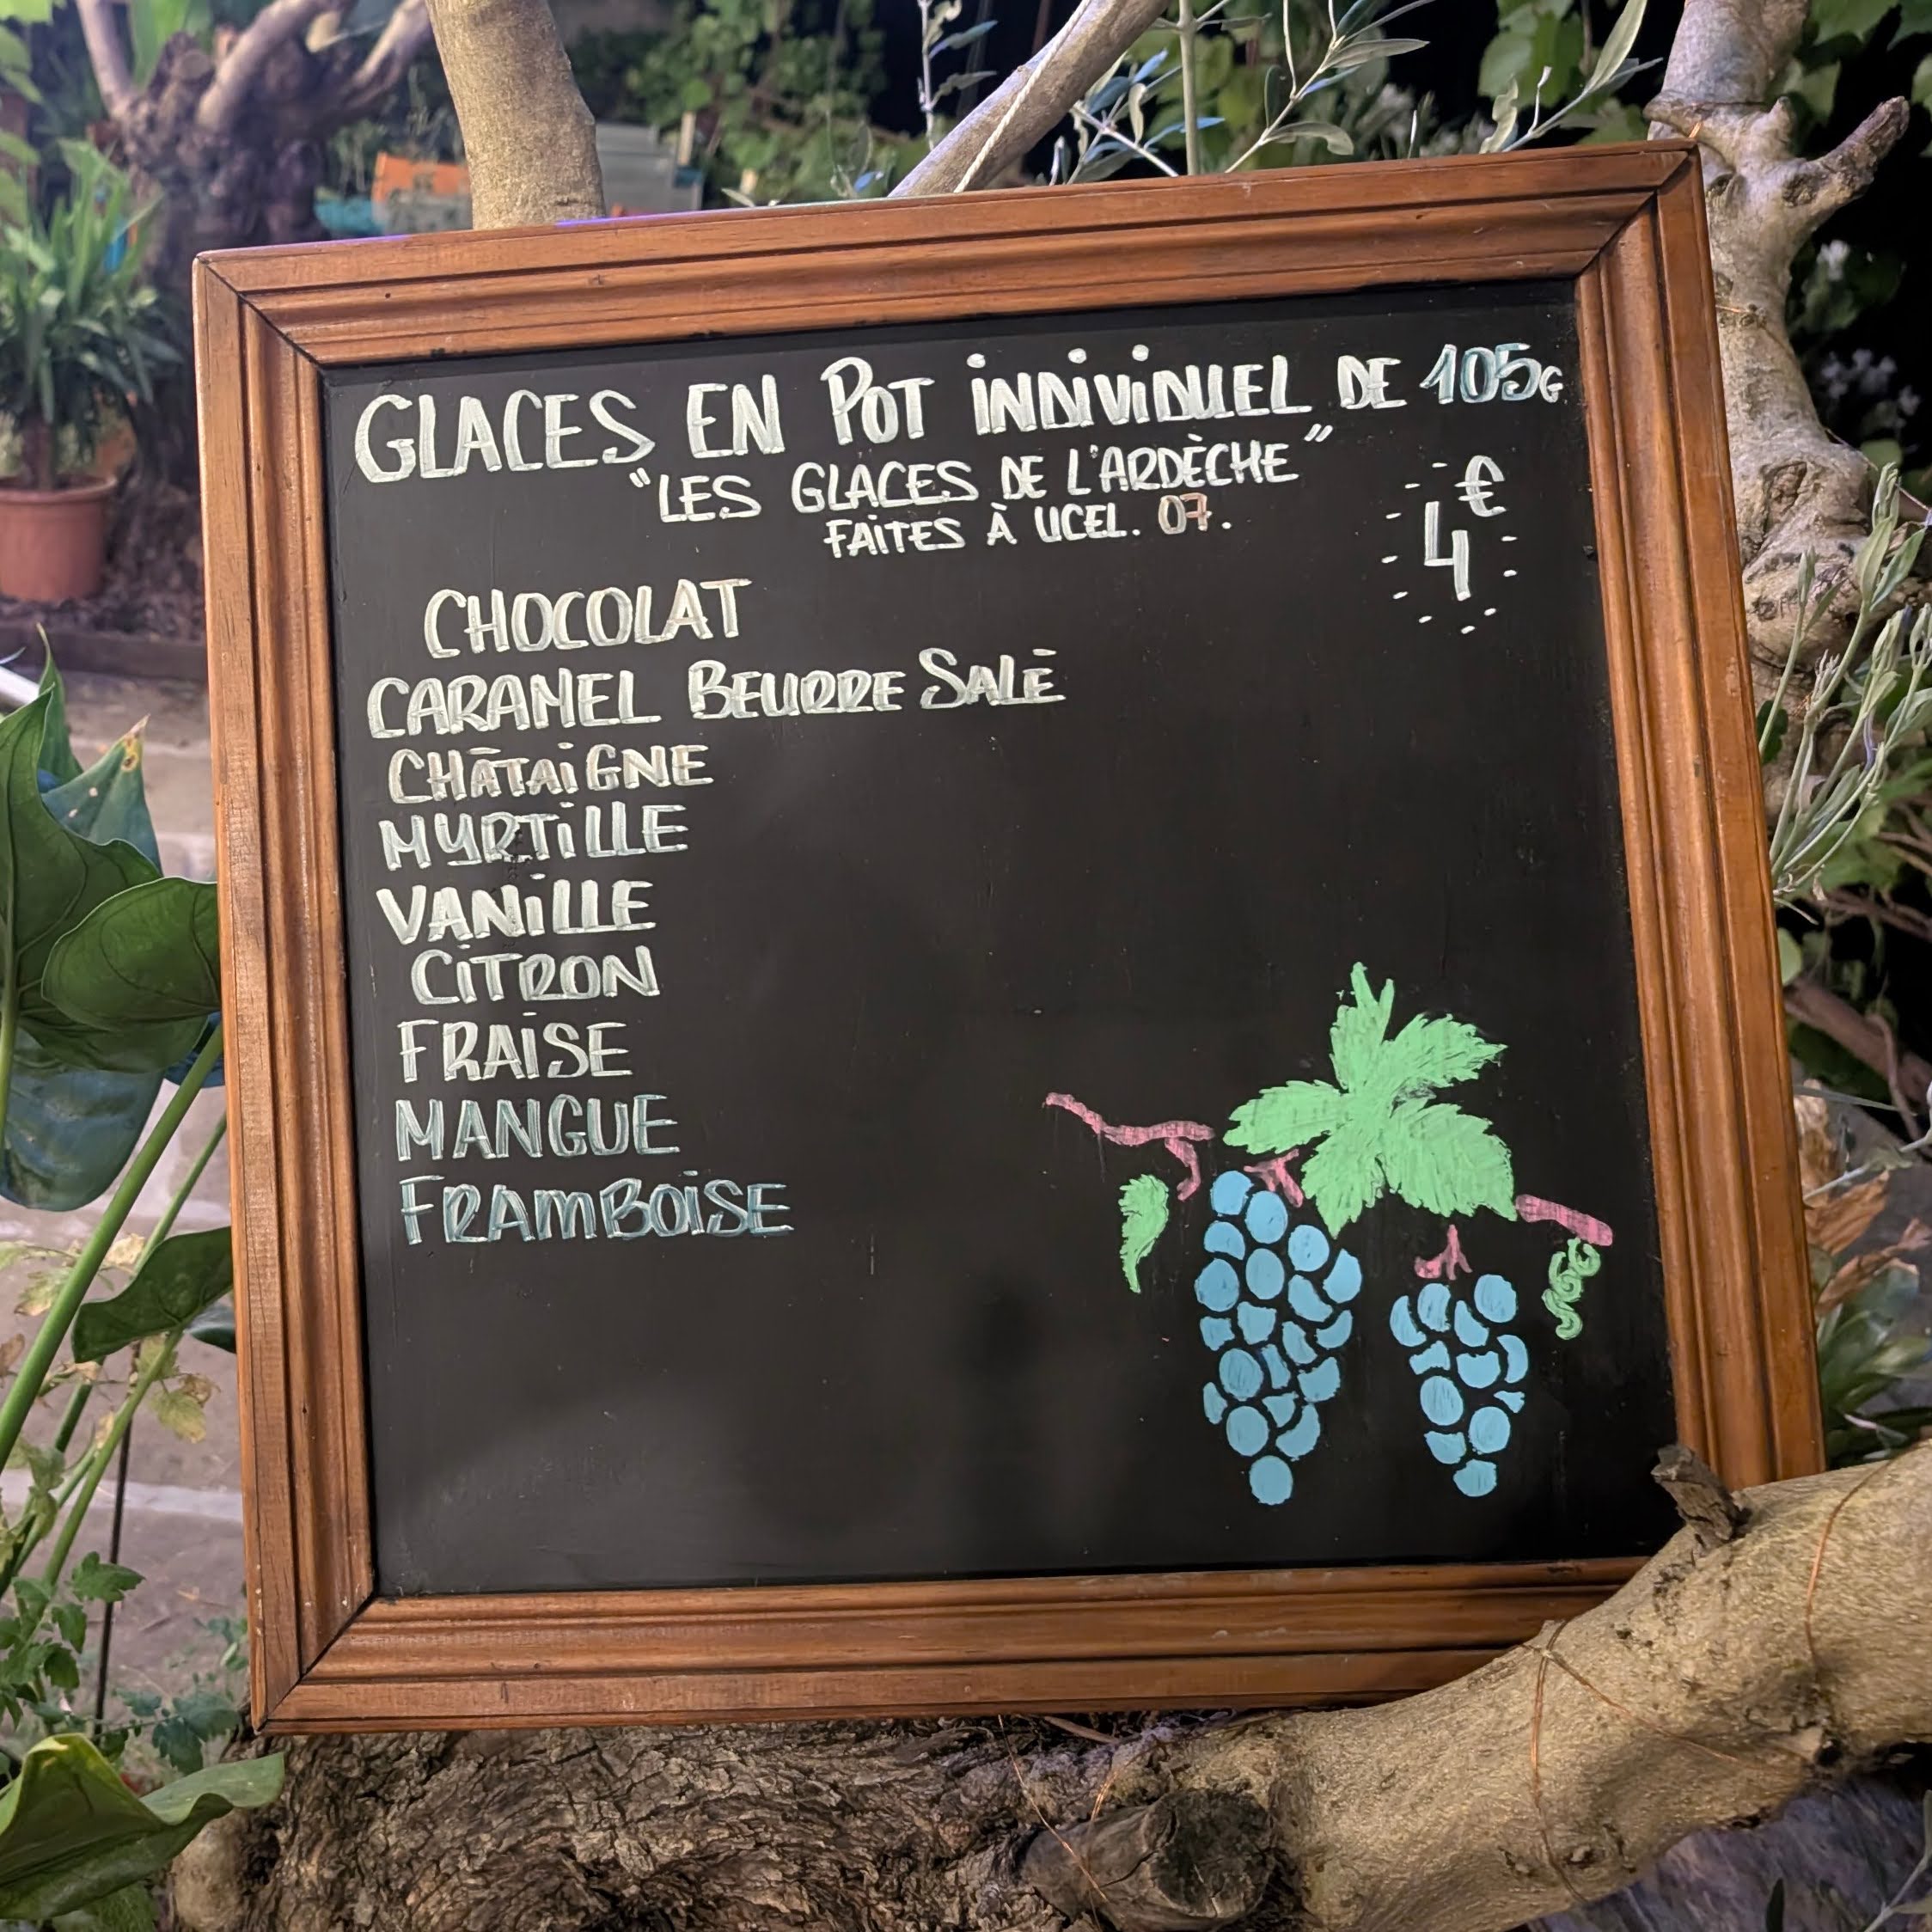 GLACES EN POT iNDiViDUEL DE 105G
"LES GLACES DE L'ARDÈCHE"
FAiTES À UCEL. 07.
4€
CHOCOLAT
CARAMEL BEURRE SALÉ
CHÂTAiGNE
MYRTiLLE
VANiLLE
CiTRON
FRAiSE
MANGUE
FRAMBOiSE